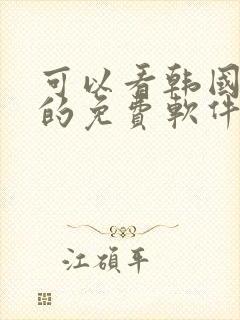 可以看韩國
的免費軟件
江碩平